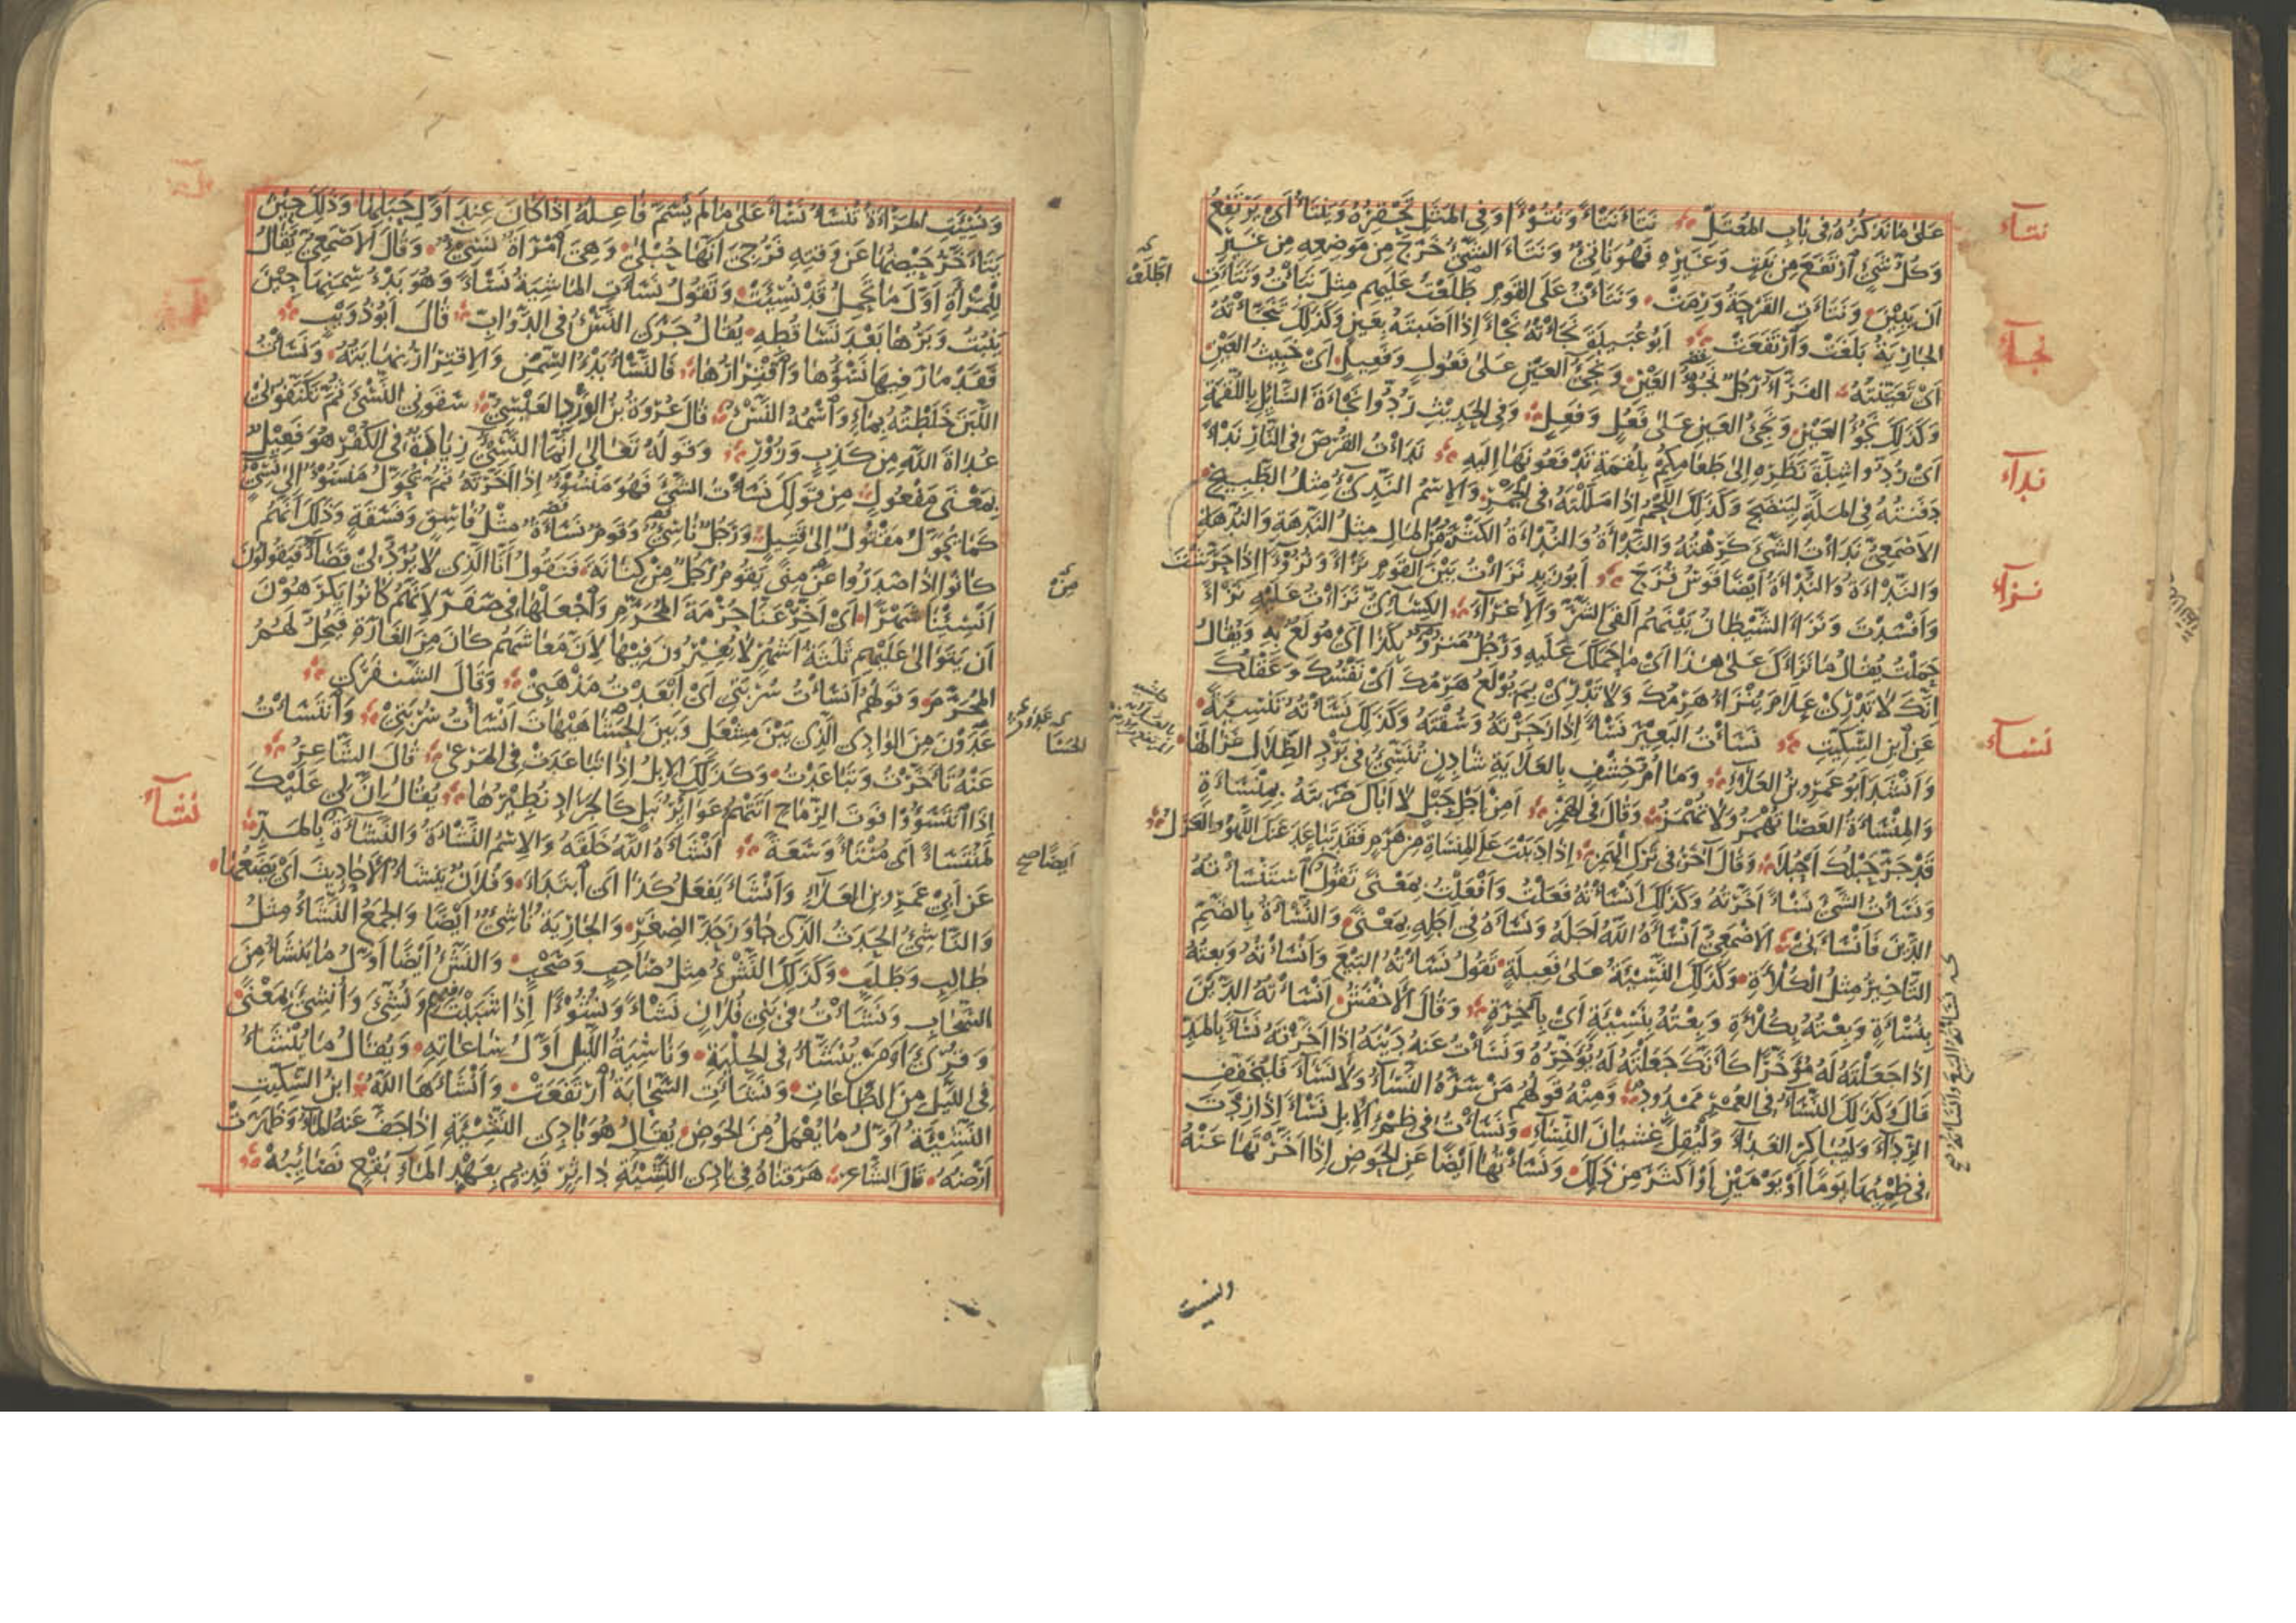 عَلىٰ مَا نَذكُرُهُ فِى بَابِ المُعتَلِّ نَتَأَ نَتْأً وَنُتُوْءًا وَفِى المَثَلِ تَحْقِرُهُ وَيَنْتَأُ اَىْ يَرْتَفِعُ
وَكُلُّ شَىْءٍ اُرْتَفَعَ مِنْ نَبْتٍ وَغَيْرِهِ فَهُوَ نَاتِئٌ وَنَتَأَ الشَّئُ خَرَجَ مِنْ مَوْضِعِهِ مِنْ غَيْرِ
اَنْ يَبِيْنَ وَنَتَأَتِ القَرْحَةُ وَرِمَتْ وَنَتَأْتُ عَلَى القَوْمِ طَلَعْتُ عَلَيهِم مِثْلَ نَبَأْتُ وَنَتَأَتِ
الجَارِيَةُ بَلَغَتْ وَاُرْتَفَعَتْ اَبُو عُبَيدٍ نَجَأْتُهُ نَجْأً اِذَا اَصَبْتَهُ بِعَيْنٍ وَكَذٰلِكَ تَنَجَّأْتُهُ
اَىْ تَعَيَّنْتُهُ الفَرَّآءُ رَجُلٌ نَجُؤُ العَيْنِ وَنَجِئُ العَيْنِ عَلىٰ فَعُوْلٍ وَفَعِيلٍ اَىْ خَبِيثُ العَيْنِ
وَكَذٰلِكَ نَجُؤُ العَيْنِ وَنَجِئُ العَيْنِ عَلىٰ فَعُلٍ وَفَعِلٍ وَفِى الحَدِيْثِ رُدُّوا نَجْأَةَ السَّائِلِ بِاللُّقْمَةِ
اَىْ رُدُّوا شِدَّةَ نَظَرِهِ اِلىٰ طَعَامِكُم بِلُقْمَةٍ تَدْفَعُونَهَا اِلَيهِ نَدَأْتُ القُرْصَ فِى النَّارِ نَدْأً
دَفَنْتُهُ فِى المَلَّةِ لِيَنْضَجَ وَكَذٰلِكَ اللَّحْمَ اِذَا مَلَلْتَهُ فِى الجَمْرِ وَالاِسْمُ النَّدِىءُ مِثْلُ الطَّبِيخِ
الاَصْمَعِىُّ نَدَأْتُ الشَّىْءَ كَرِهْتُهُ وَالنَّدْأَةُ وَالنُّدْأَةُ الكَثْرَةُ مِنَ المَالِ مِثْلُ النَّدْهَةِ وَالنُّدْهَةِ
وَالنَّدْأَةُ وَالنُّدْأَةُ اَيْضًا قَوْسُ قُزَحَ اَبُوْ زَيدٍ نَزَأْتُ بَيْنَ القَوْمِ نَزْأً وَنُزُوْءًا اِذَا حَرَّشْتَ
وَاَفْسَدْتَ وَنَزَأَ الشَّيْطَانُ بَيْنَهُم اَلْقَى الشَّرَّ وَالاِغْرَآءَ الكِسَائِىُّ نَزَأْتُ عَلَيْهِ نَزْأً
حَمَلْتُ يُقَالُ مَا نَزَأَكَ عَلىٰ هٰذَا اَىْ مَا حَمَلَكَ عَلَيهِ وَرَجُلٌ مَنْزُوْءٌ بِكَذَا اَىْ مُولَعٌ بِهِ وَيُقَالُ
اِنَّكَ لاَ تَدْرِىْ عَلاَمَ يُنْزَأُ هَرِمُكَ وَلاَ تَدْرِىْ بِمَ يُوْلَعُ هَرِمُكَ اَىْ نَفْسُكَ وَعَقْلُكَ
عَنِ اُبْنِ السِّكِّيتِ نَسَأْتُ البَعِيْرَ نَسْأً اِذَا زَجَرْتَهُ وَسُقْتَهُ وَكَذٰلِكَ نَسَّأْتُهُ تَنْسِئَةً
وَاَنْشَدَ اَبُو عَمْرِو بْنُ العَلاَءِ وَمَا اُمُّ خِشْفٍ بِالعَلاَيَةِ شَادِنٍ تُنَسِّئُ فِى بَرْدِ الظِّلاَلِ غَزَالَهَا
وَالمِنْسَأَةُ العَصَا تُهْمَزُ وَلاَ تُهْمَزُ وَقَالَ فِى الهَمْزِ اَمِنْ اَجْلِ حَبْلٍ لاَ اَبَاكَ ضَرَبْتَهُ بِمِنْسَأَةٍ
قَدْ جَرَّ حَبْلُكَ اَحْبُلاَ وَقَالَ آخَرُ فِى تَرْكِ الهَمْزِ اِذَا دَبَبْتَ عَلَى المِنْسَاةِ مِنْ هَرَمٍ فَقَدْ تَبَاعَدَ عَنْكَ اللَّهْوُ وَالغَزَلُ
وَنَسَأْتُ الشَّىْءَ نَسْأً اَخَّرْتُهُ وَكَذٰلِكَ اَنْسَأْتُهُ فَعَلْتُ وَاَفْعَلْتُ بِمَعْنًى تَقُوْلُ اُسْتَنْسَأْتُهُ
الدَّيْنَ فَاَنْسَأَنِىْ الاَصْمَعِىُّ اَنْسَأَهُ اللّٰهُ اَجَلَهُ وَنَسَأَهُ فِى اَجَلِهِ بِمَعْنًى وَالنُّسْأَةُ بِالضَّمِّ
التَّأْخِيْرُ مِثْلُ الكُلأَةِ وَكَذٰلِكَ النَّسِيْئَةُ عَلىٰ فَعِيلَةٍ تَقُوْلُ نَسَأْتُهُ البَيْعَ وَاَنْسَأْتُهُ وَبِعْتُهُ
بِنُسْأَةٍ وَبِعْتُهُ بِكُلأَةٍ وَبِعْتُهُ بِنَسِيْئَةٍ اَىْ بِاَخِرَةٍ وَقَالَ الاَخْفَشُ اَنْسَأْتُهُ الدَّيْنَ
اِذَا جَعَلْتَهُ لَهُ مُؤَخَّرًا كَاَنَّكَ جَعَلْتَهُ لَهُ يُؤَخِّرُهُ وَنَسَأْتُ عَنْهُ دَيْنَهُ اِذَا اَخَّرْتَهُ نَسَآءً بِالمَدِّ
قَالَ وَكَذٰلِكَ النَّسَآءُ فِى العُمُرِ مَمْدُودٌ وَمِنْهُ قَولُهُم مَنْ سَرَّهُ النَّسَآءُ وَلاَ نَسَآءَ فَلْيُخَفِّفِ
الرِّدَآءَ وَلْيُبَاكِرِ الغَدَآءَ وَلْيُقِلَّ غِشْيَانَ النِّسَآءِ وَنَسَأْتُ فِى ظِمْءِ الاِبِلِ نَسْأً اِذَا زِدْتَ
فِى ظِمْئِهَا يَوْمًا اَوْ يَوْمَيْنِ اَوْ اَكْثَرَ مِنْ ذٰلِكَ وَنَسَأْتُهَا اَيْضًا عَنِ الحَوْضِ اِذَا اَخَّرْتَهَا عَنْهُ
نتآء
نجآء
ندآء
نزآء
نسآء
وَنُسِئَتِ المَرْأَةُ تُنْسَأُ نَسْأً عَلىٰ مَا لَم يُسَمَّ فَاعِلُهُ اِذَا كَانَ عِنْدَ اَوَّلِ حَبَلِهَا وَذٰلِكَ حِيْنَ
يَتَأَخَّرُ حَيْضُهَا عَنْ وَقْتِهِ فَرُجِىَ اَنَّهَا حُبْلىٰ وَهِىَ اُمْرَأَةٌ نَسِئٌ وَقَالَ الاَصْمَعِىُّ يُقَالُ
لِلْمَرْأَةِ اَوَّلَ مَا تَحْمِلُ قَدْ نُسِئَتْ وَتَقُولُ نَسَأَتِ المَاشِيَةُ نَسْأً وَهُوَ بَدْءُ سِمَنِهَا حِيْنَ
يَنْبُتُ وَبَرُهَا بَعْدَ تَسَاقُطِهِ يُقَالُ جَرَى النَّسْءُ فِى الدَّوَابِّ قَالَ اَبُوْ ذُوَيْبٍ
فَقَدْ مَارَ فِيهَا نَسْؤُهَا وَاُقْتِرَارُهَا فَالنَّسْأُ بَدْءُ السِّمَنِ وَالاِقْتِرَارُ نِهَايَتُهُ وَنَسَأْتُ
اللَّبَنَ خَلَطْتُهُ بِمَآءٍ وَاُسْمُهُ النَّسْءُ قَالَ عُرْوَةُ بْنُ الوَرْدِ العَبْسِىُّ سَقَوْنِى النَّسْءَ ثُمَّ تَكَنَّفُوْنِىْ
عُدَاةَ اللّٰهِ مِنْ كَذِبٍ وَزُوْرِ وَقَولُهُ تَعَالىٰ اِنَّمَا النَّسِئُ زِيَادَةٌ فِى الكُفْرِ هُوَ فَعِيْلٌ
بِمَعْنَى مَفْعُولٍ مِنْ قَولِكَ نَسَأْتُ الشَّئَ فَهُوَ مَنْسُوْءٌ اِذَا اَخَّرْتَهُ ثُمَّ يُحَوَّلُ مَنْسُوْءٌ اِلىٰ نَسِئٍ
كَمَا يُحَوَّلُ مَقْتُولٌ اِلىٰ قَتِيلٍ وَرَجُلٌ نَاسِئٌ وَقَومٌ نَسَأَةٌ مِثْلُ فَاسِقٍ وَفَسَقَةٍ وَذٰلِكَ اَنَّهُم
كَانُوا اِذَا صَدَرُوا عَنْ مِنًى يَقُومُ رَجُلٌ مِنْ كِنَانَةَ فَيَقُولُ اَنَا الَّذِى لاَ يُرَدُّ لِىْ قَضَآءٌ فَيَقُولُوْنَ
اَنْسِئْنَا شَهْرًا اَىْ اَخِّرْ عَنَّا حُرْمَةَ المُحَرَّمِ وَاُجْعَلْهَا فِى صَفَرَ لِاَنَّهُم كَانُوا يَكْرَهُوْنَ
اَنْ يَتَوَالىٰ عَلَيْهِم ثَلٰثَةُ اَشْهُرٍ لاَ يُغِيْرُونَ فِيْهَا لِاَنَّ مَعَاشَهُم كَانَ مِنَ الغَارَةِ فَيُحِلُّ لَهُمُ
المُحَرَّمَ وَقَولُهُم اَنْسَأْتُ سُرْبَتِى اَىْ اَبْعَدْتُ مَذْهَبِىْ وَقَالَ الشَّنْفَرَى
عَدَوْنَ مِنَ الوَادِى الَّذِى بَيْنَ مِشْعَلٍ وَبَيْنَ الحَشَا هَيْهَاتَ اَنْسَأْتُ سُرْبَتِىْ وَاُنْتَسَأْتُ
عَنْهُ تَأَخَّرْتُ وَتَبَاعَدْتُ وَكَذٰلِكَ الاِبِلُ اِذَا تَبَاعَدَتْ فِى المَرْعىٰ قَالَ الشَّاعِرُ
اِذَا اُنْتَسَؤُوْا فَوْتَ الرِّمَاحِ اَتَتْهُمُ عَوَائِرُ نَبْلٍ كَالجَرَادِ نُطِيْرُهَا يُقَالُ اِنَّ لِى عَلَيْكَ
لَمُنْتَسَأً اَى مُنْتَأً وَسَعَةً اَنْشَأَهُ اللّٰهُ خَلَقَهُ وَالاِسْمُ النَّشْأَةُ وَالنَّشَآءَةُ بِالمَدِّ
عَنْ اَبِىْ عَمْرِو بنِ العَلآءِ وَاَنْشَأَ يَفْعَلُ كَذَا اَى اُبْتَدَأَ وَفُلاَنٌ يُنْشِئُ الاَحَادِيْثَ اَىْ يَضَعُهَا
وَالنَّاشِئُ الحَدَثُ الَّذِى جَاوَزَ حَدَّ الصِّغَرِ وَالجَارِيَةُ نَاشِئٌ اَيْضًا وَالجَمْعُ النَّشَأُ مِثْلُ
طَالِبٍ وَطَلَبٍ وَكَذٰلِكَ النَّشْءُ مِثْلُ صَاحِبٍ وَصَحْبٍ وَالنَّشْءُ اَيْضًا اَوَّلُ مَا يَنْشَأُ مِنَ
السَّحَابِ وَنَشَأْتُ فِىْ بَنِى فُلاَنٍ نَشْأً وَنُشُوْءًا اِذَا شَبَبْتَ فِيهِم وَنُشِّئَ وَاُنْشِئَ بِمَعْنًى
وَقُرِئَ اَوَمَنْ يُنَشَّأُ فِى الحِلْيَةِ وَنَاشِيَةُ اللَّيْلِ اَوَّلُ سَاعَاتِهِ وَيُقَالُ مَا يُنْشَأُ
فِى اللَّيْلِ مِنَ الطَّاعَاتِ وَنَشَأَتِ السَّحَابَةُ اُرْتَفَعَتْ وَاَنْشَأَهَا اللّٰهُ ابْنُ السِّكِّيتِ
النَّشِيْئَةُ اَوَّلُ مَا يُعْمَلُ مِنَ الحَوْضِ يُقَالُ هُوَ بَادِى النَّشِيْئَةِ اِذَا جَفَّ عَنْهُ المَآءُ وَظَهَرَتْ
اَرْضُهُ قَالَ الشَّاعِرُ هَرَقْنَاهُ فِى بَادِى النَّشِيْئَةِ دَاثِرٍ قَدِيْمٍ بِعَهْدِ المَآءِ بُقْعٍ نَصَائِبُهْ
نشآء
ايضًا صح